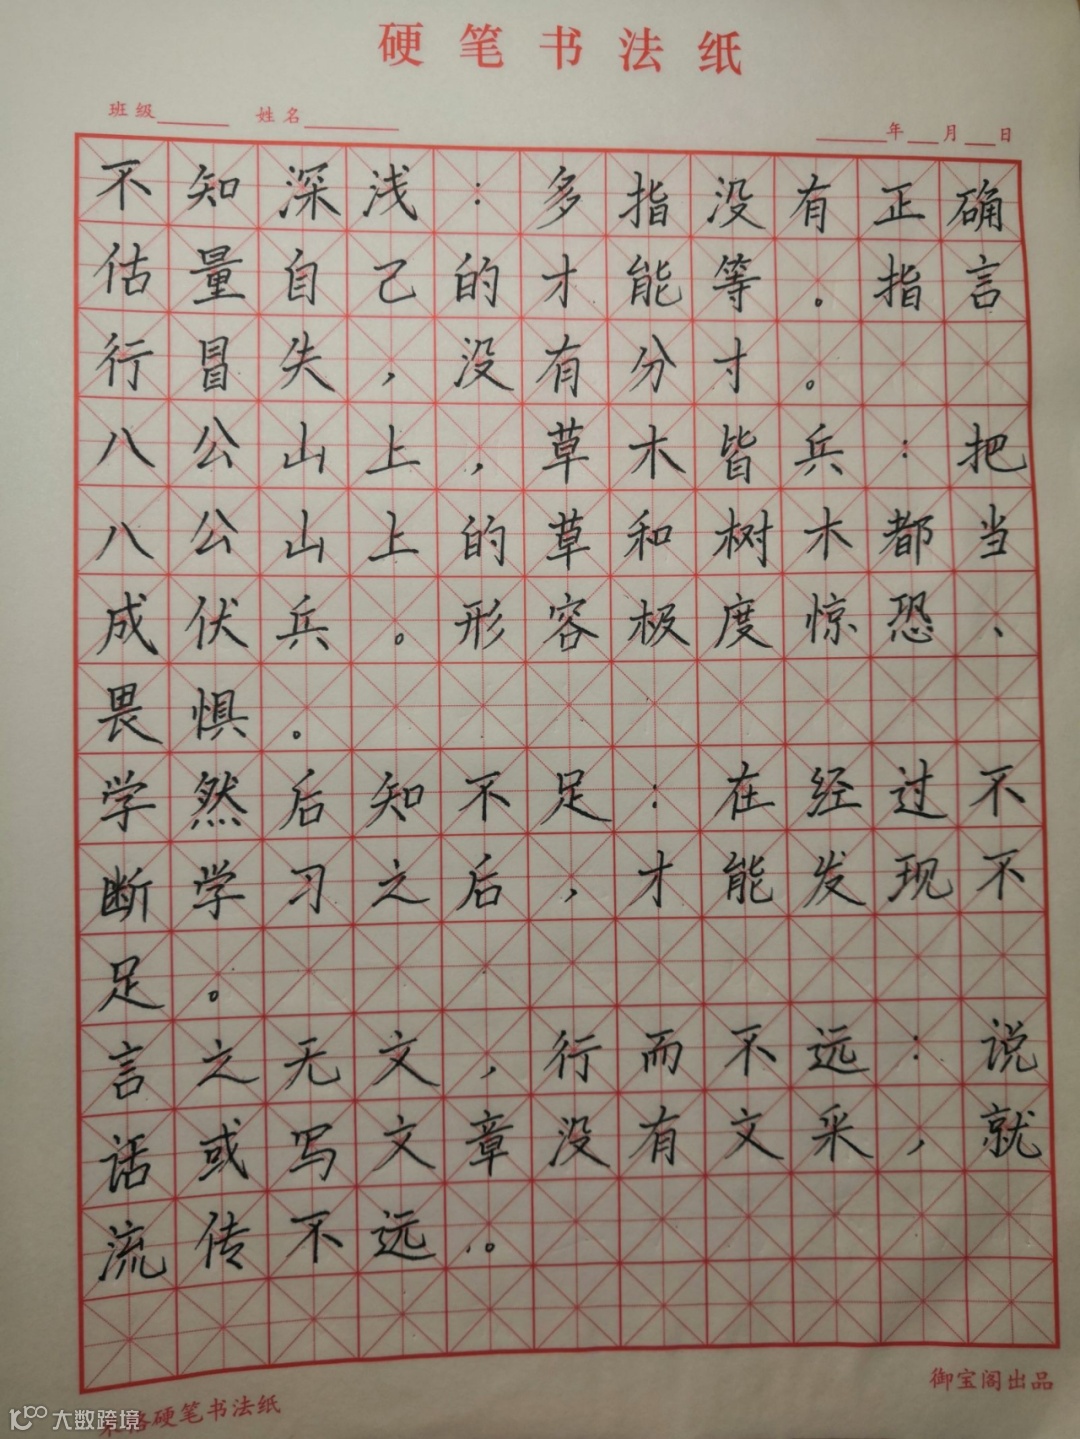 硬笔书法纸
班级 姓名 年 月 日
不知深浅：多指没有正确
估量自己的才能等。指言
行冒失，没有分寸。
八公山上，草木皆兵：把
八公山上的草和树木都当
成伏兵。形容极度惊恐、
畏惧。
学然后知不足：在经过不
断学习之后，才能发现不
足。
言之无文，行而不远：说
话或写文章没有文采，就
流传不远。
御宝阁出品
硬笔书法纸
大数跨境